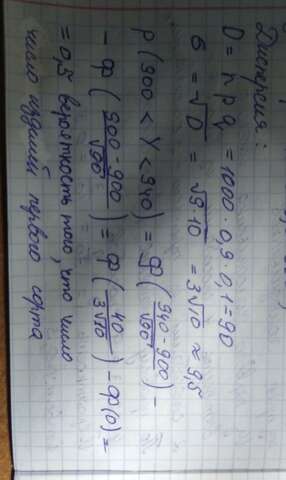 Дисперсия:
D = npq = 1000 · 0,9 · 0,1 = 90
б = √D = √9 10 = 3√10 ≈ 9,5
P(900 < Y < 940) = φ((940 - 900)/√90) -
- φ((900 - 900)/√90) = φ(40/(3√10)) - φ(0) =
= 0,5 вероятность того, что число
число изделий первого сорта